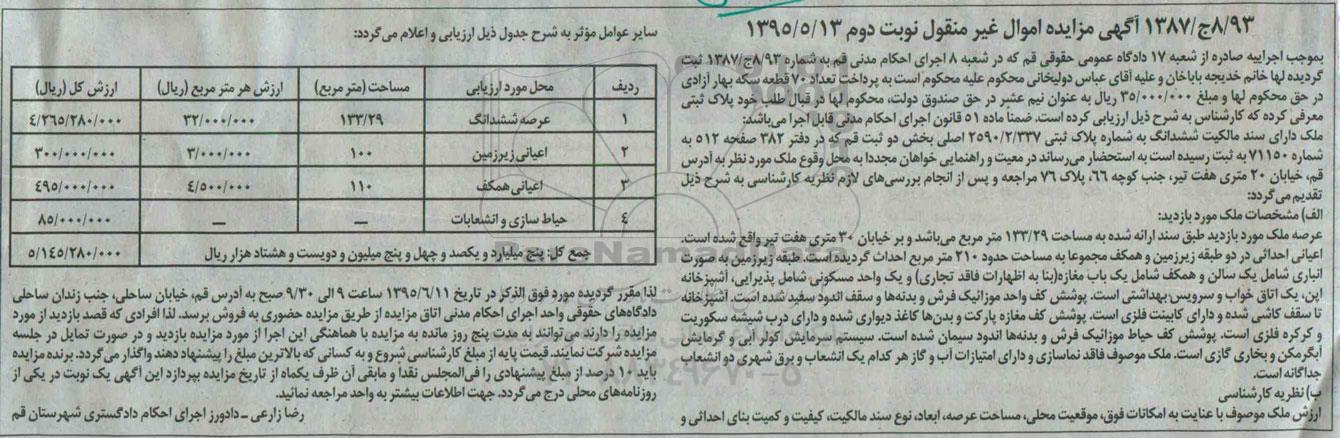 ۸/۹۳ج/۱۳۸۷ آگهی مزایده اموال غیر منقول نوبت دوم ۱۳۹۵/۵/۱۳
بموجب اجراییه صادره از شعبه ۱۷ دادگاه عمومی حقوقی قم که در شعبه ۸ اجرای احکام مدنی قم به شماره ۸/۹۳ج/۱۳۸۷ ثبت
گردیده لها خانم خدیجه باباخان و علیه آقای عباس دولیخانی محکوم علیه محکوم است به پرداخت تعداد ۷۰ قطعه سکه بهار آزادی
در حق محکوم لها و مبلغ ۳۵/۰۰۰/۰۰۰ ریال به عنوان نیم عشر در حق صندوق دولت، محکوم لها در قبال طلب خود پلاک ثبتی
معرفی کرده که کارشناس به شرح ذیل ارزیابی کرده است. ضمنا ماده ۵۱ قانون اجرای احکام مدنی قابل اجرا می‌باشد:
ملک دارای سند مالکیت ششدانگ به شماره پلاک ثبتی ۲۵۹۰/۲/۳۳۷ اصلی بخش دو ثبت قم که در دفتر ۳۸۲ صفحه ۵۱۲ به
شماره ۷۱۱۵۰ به ثبت رسیده است به استحضار می‌رساند در معیت و راهنمایی خواهان مجددا به محل وقوع ملک مورد نظر به آدرس
قم، خیابان ۲۰ متری هفت تیر، جنب کوچه ۶۶، پلاک ۷۶ مراجعه و پس از انجام بررسی‌های لازم نظریه کارشناسی به شرح ذیل
تقدیم می‌گردد:
الف) مشخصات ملک مورد بازدید:
عرصه ملک مورد بازدید طبق سند ارائه شده به مساحت ۱۳۳/۲۹ متر مربع می‌باشد و بر خیابان ۳۰ متری هفت تیر واقع شده است.
اعیانی احداثی در دو طبقه زیرزمین و همکف مجموعا به مساحت حدود ۲۱۰ متر مربع احداث گردیده است. طبقه زیرزمین به صورت
انباری شامل یک سالن و همکف شامل یک باب مغازه(بنا به اظهارات فاقد تجاری) و یک واحد مسکونی شامل پذیرایی، آشپزخانه
اپن، یک اتاق خواب و سرویس بهداشتی است. پوشش کف واحد موزائیک فرش و بدنه‌ها و سقف اندود سفید شده است. آشپزخانه
تا سقف کاشی شده و دارای کابینت فلزی است. پوشش کف مغازه پارکت و بدن‌ها کاغذ دیواری شده و دارای درب شیشه سکوریت
و کرکره فلزی است. پوشش کف حیاط موزائیک فرش و بدنه‌ها اندود سیمان شده است. سیستم سرمایش کولر آبی و گرمایش
آبگرمکن و بخاری گازی است. ملک موصوف فاقد نماسازی و دارای امتیازات آب و گاز هر کدام یک انشعاب و برق شهری دو انشعاب
جداگانه است.
ب) نظریه کارشناسی
ارزش ملک موصوف با عنایت به امکانات فوق، موقعیت محلی، مساحت عرصه، ابعاد، نوع سند مالکیت، کیفیت و کمیت بنای احداثی و
سایر عوامل مؤثر به شرح جدول ذیل ارزیابی و اعلام می‌گردد:
ردیف محل مورد ارزیابی مساحت (متر مربع) ارزش هر متر مربع (ریال) ارزش کل (ریال)
۱ عرصه ششدانگ ۱۳۳/۲۹ ۳۲/۰۰۰/۰۰۰ ۴/۲۶۵/۲۸۰/۰۰۰
۲ اعیانی زیرزمین ۱۰۰ ۳/۰۰۰/۰۰۰ ۳۰۰/۰۰۰/۰۰۰
۳ اعیانی همکف ۱۱۰ ۴/۵۰۰/۰۰۰ ۴۹۵/۰۰۰/۰۰۰
۴ حیاط سازی و انشعابات — — ۸۵/۰۰۰/۰۰۰
جمع کل: پنج میلیارد و یکصد و چهل و پنج میلیون و دویست و هشتاد هزار ریال ۵/۱۴۵/۲۸۰/۰۰۰
لذا مقرر گردیده مورد فوق الذکر در تاریخ ۱۳۹۵/۶/۱۱ ساعت ۹ الی ۹/۳۰ صبح به آدرس قم، خیابان ساحلی، جنب زندان ساحلی
دادگاه‌های حقوقی واحد اجرای احکام مدنی اتاق مزایده از طریق مزایده حضوری به فروش برسد. لذا افرادی که قصد بازدید از مورد
مزایده را دارند می‌توانند به مدت پنج روز مانده به مزایده با هماهنگی این اجرا از مورد مزایده بازدید و در صورت تمایل در جلسه
مزایده شرکت نمایند. قیمت پایه از مبلغ کارشناسی شروع و به کسانی که بالاترین مبلغ را پیشنهاد دهند واگذار می‌گردد. برنده مزایده
باید ۱۰ درصد از مبلغ پیشنهادی را فی‌المجلس نقدا و مابقی آن ظرف یکماه از تاریخ مزایده بپردازد این آگهی یک نوبت در یکی از
روزنامه‌های محلی درج می‌گردد. جهت اطلاعات بیشتر به واحد مراجعه نمائید.
رضا زارعی – دادورز اجرای احکام دادگستری شهرستان قم